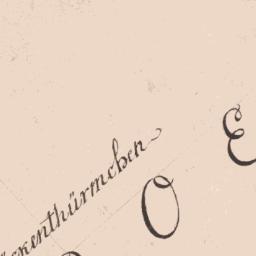 ckenthürmchen
O E